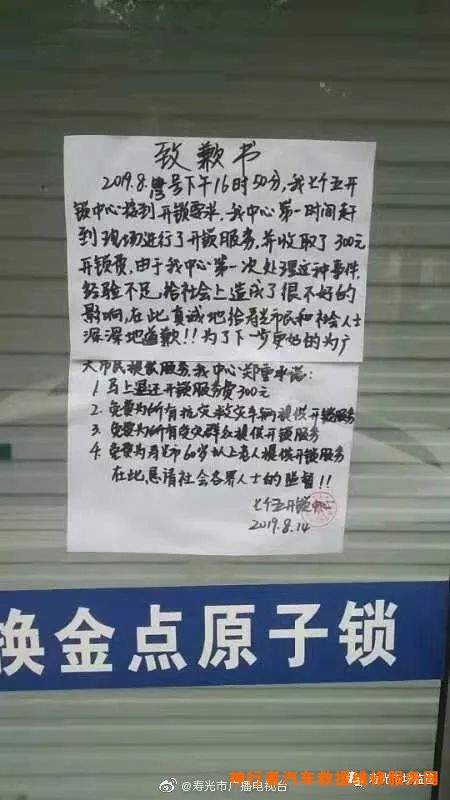 致歉书
2019.8.号下午16时50分,我七个五开
锁中心接到开锁要求,我中心第一时间赶
到现场进行了开锁服务,并收取了300元
开锁费,由于我中心第一次处理这种事件,
经验不足,给社会上造成了很不好的
影响,在此真诚地给寿光市民和社会人士
深深地道歉!!为了下一步更好的为广
大市民提供服务,我中心郑重承诺:
1 马上退还开锁服务费300元
2. 免费为所有抗灾救灾车辆提供开锁服务
3 免费为所有受灾群众提供开锁服务
4 免费为寿光市60岁以上老人提供开锁服务
在此,恳请社会各界人士的监督!!
七个五开锁中心
2019.8.14
换金点原子锁
@寿光市广播电视台
神行者汽车救援维修服务网